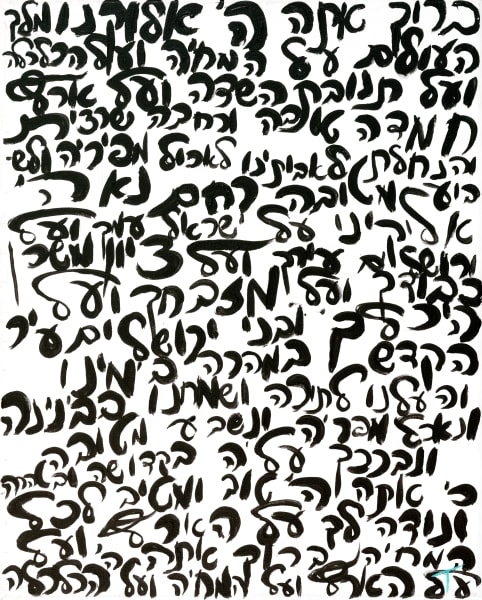 ברוך אתה ה' אלוקינו מלך
העולם על המחיה ועל הכלכלה
ועל תנובת השדה ועל ארץ
חמדה טובה ורחבה שרצית
והנחלת לאבותינו לאכול מפריה ולש
בוע מטובה רחם נא ה'
אלוקינו על ישראל עמך ועל
ירושלים עירך ועל ציון משכן
כבודך ועל מזבחך ועל
היכלך ובנה ירושלים עיר
הקדש במהרה בימינו
והעלנו לתוכה ושמחנו בבנינה
ונאכל מפריה ונשבע מטובה
ונברכך עליה בקדושה ובטהרה
כי אתה ה' טוב ומטיב לכל
ונודה לך ה' על הארץ ועל
המחיה ברוך אתה ה'
על הארץ ועל המחיה ועל הכלכלה